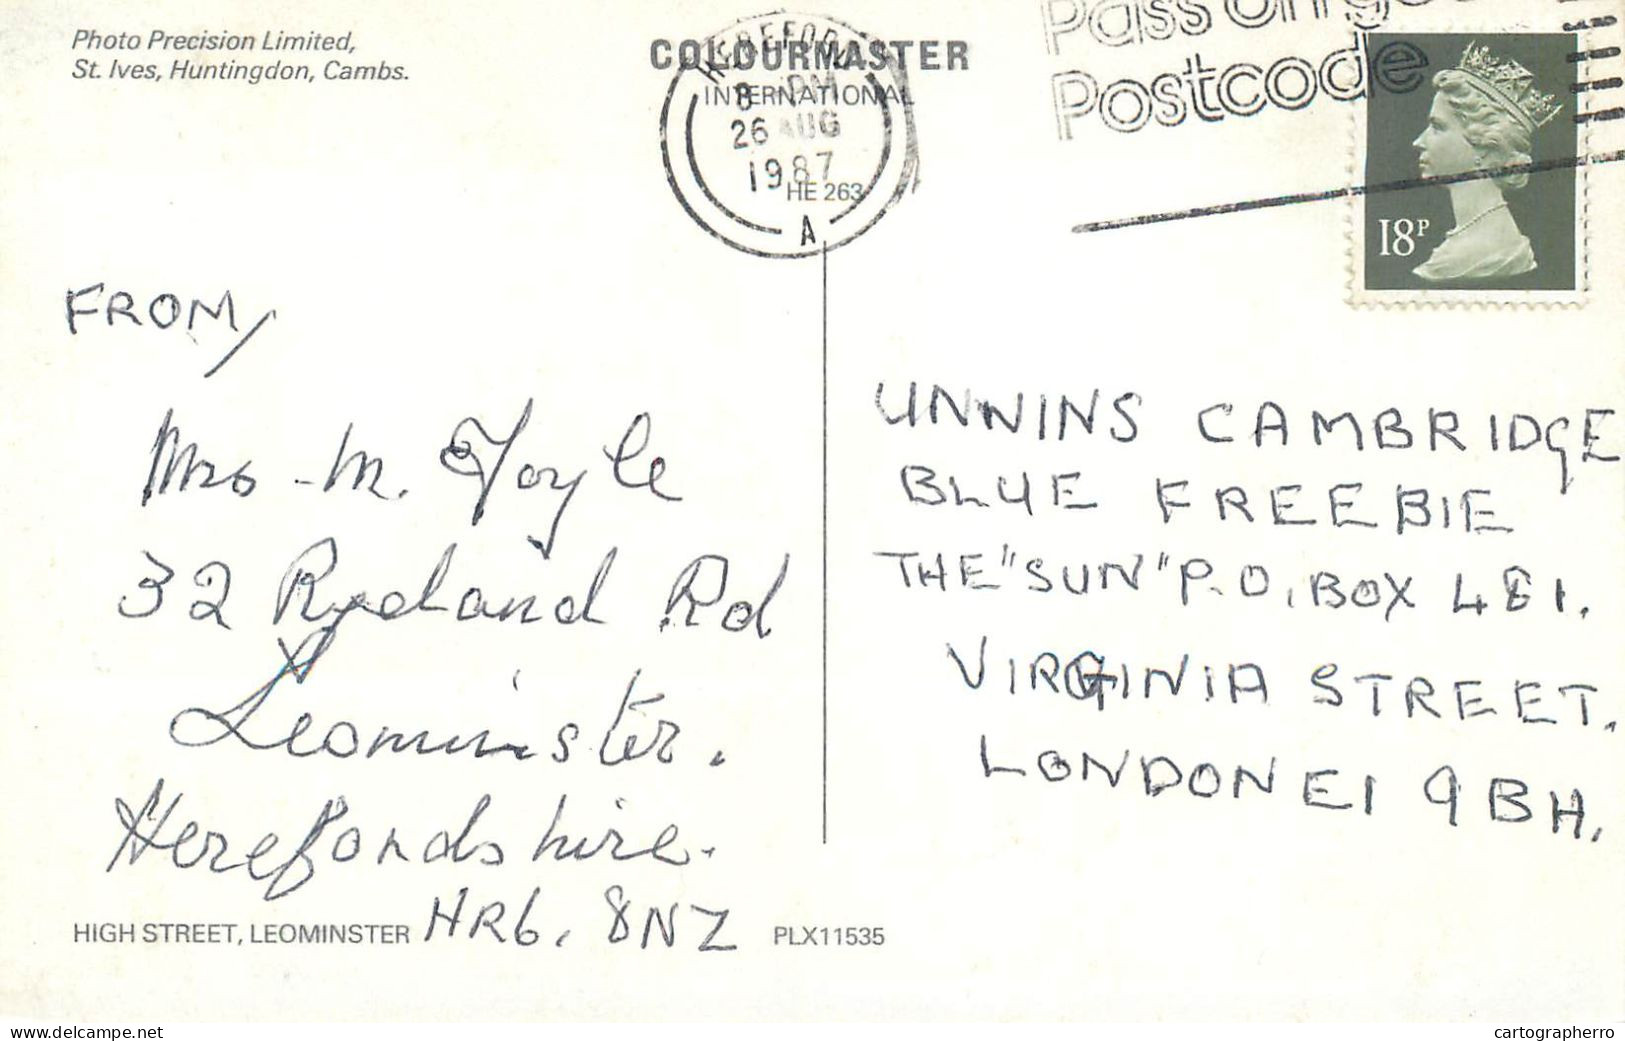 Photo Precision Limited,
St. Ives, Huntingdon, Cambs.
COLOURMASTER
INTERNATIONAL
HE 263
HEREFORD
8 PM
26 AUG
1987
A
Pass on
Postcode
18P
FROM,
Mrs. M.
32 Ryeland Rd
Leominster.
Herefordshire.
HR6. 8NZ
UNWINS CAMBRIDGE
BLUE FREEBIE
THE "SUN" P.O. BOX 481.
VIRGINIA STREET.
LONDON E1 9BH.
HIGH STREET, LEOMINSTER
PLX11535
delcampe.net
cartographerro